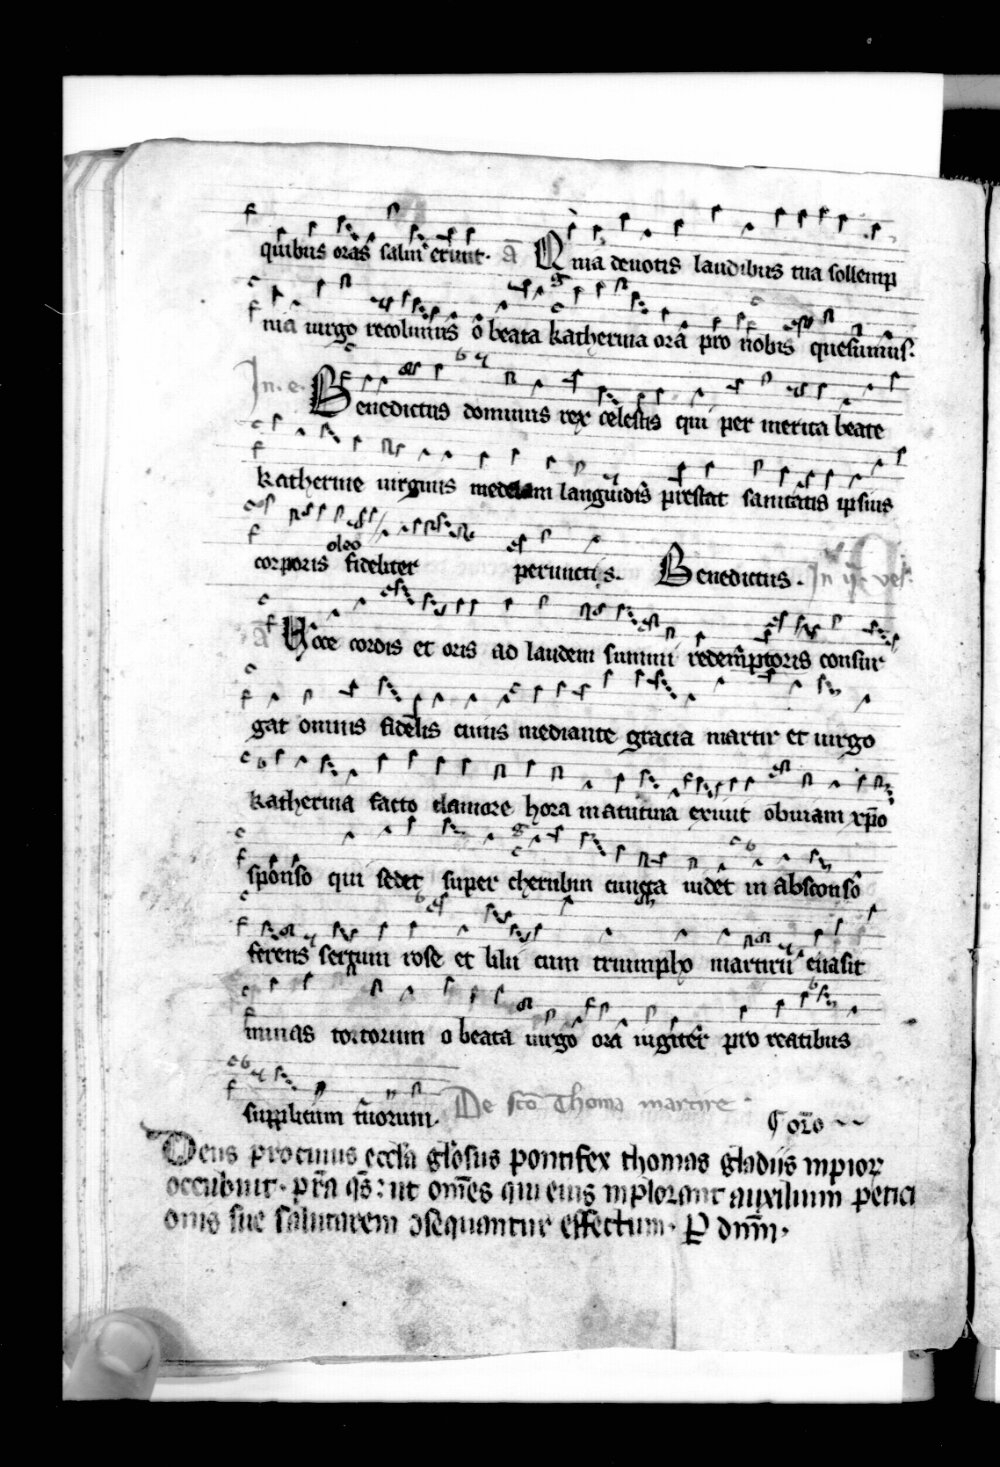 quibus oras salui erunt. a Quia deuotis laudibus tua sollemp
nia uirgo recolimus o beata katherina ora pro nobis quesumus.
In. e. Benedictus dominus rex celestis qui per merita beate
katherine uirginis medelam languidis prestat sanitatis ipsius
corporis oleo fideliter perunctis. Benedictus. In ij. ves.
a Voce cordis et oris ad laudem summi redemptoris consur
gat omnis fidelis cuius mediante gracia martir et uirgo
katherina facto clamore hora matutina exiuit obuiam xp̄o
sponso qui sedet super cherubin cuncta uidet in absconso
ferens sertum rose et lilii cum triumpho martirii euasit
minas tortorum o beata uirgo ora iugiter pro reatibus
supplicum tuorum. De sc̄o Thoma martire.
Oro
Deus pro cuius eccl̄ia gl̄osus pontifex thomas gladiis inpior
occubuit. p̄ra q̄s: ut om̄es qui eius inplorant auxilium petici
onis sue salutarem ɔsequantur effectum. P dn̄m.